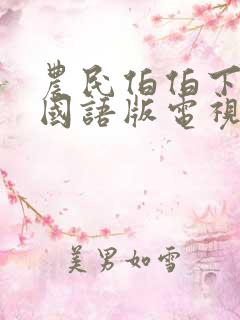 農民伯伯下
國語版電視
美男如雪